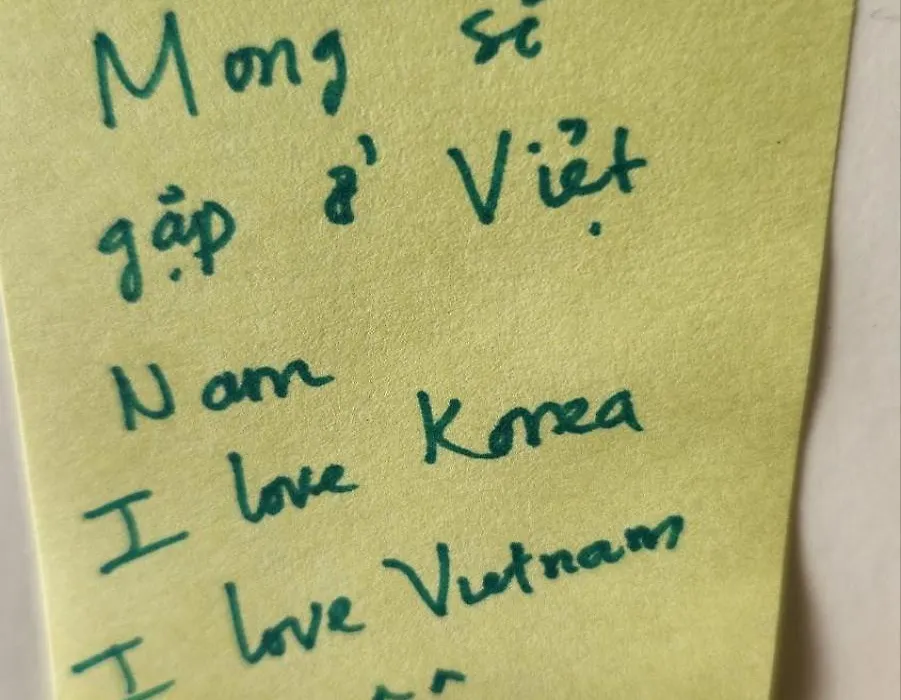 Mong sẽ
gặp ở Việt
Nam
I love Korea
I love Vietnam